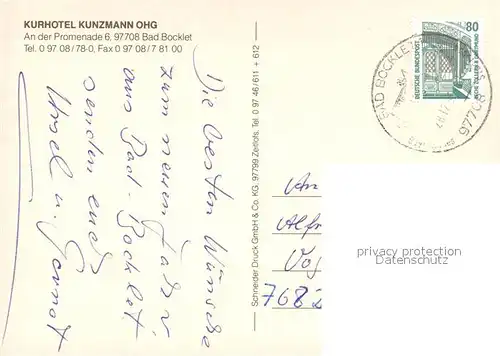 KURHOTEL KUNZMANN OHG
An der Promenade 6, 97708 Bad Bocklet
Tel. 0 97 08 / 78-0, Fax 0 97 08 / 7 81 00
Die besten Wünsche
zum neuen Jahr
aus Bad-Bocklet
senden euch
Ursel u. Gernot
Schneider Druck GmbH & Co. KG, 97799 Zeitlofs, Tel. 0 97 46/611 + 612
80
DEUTSCHE BUNDESPOST
ZECHE ZOLLERN II DORTMUND
BAD BOCKLET
97708
An
Alfr
Vo
7682
privacy protection
watermark